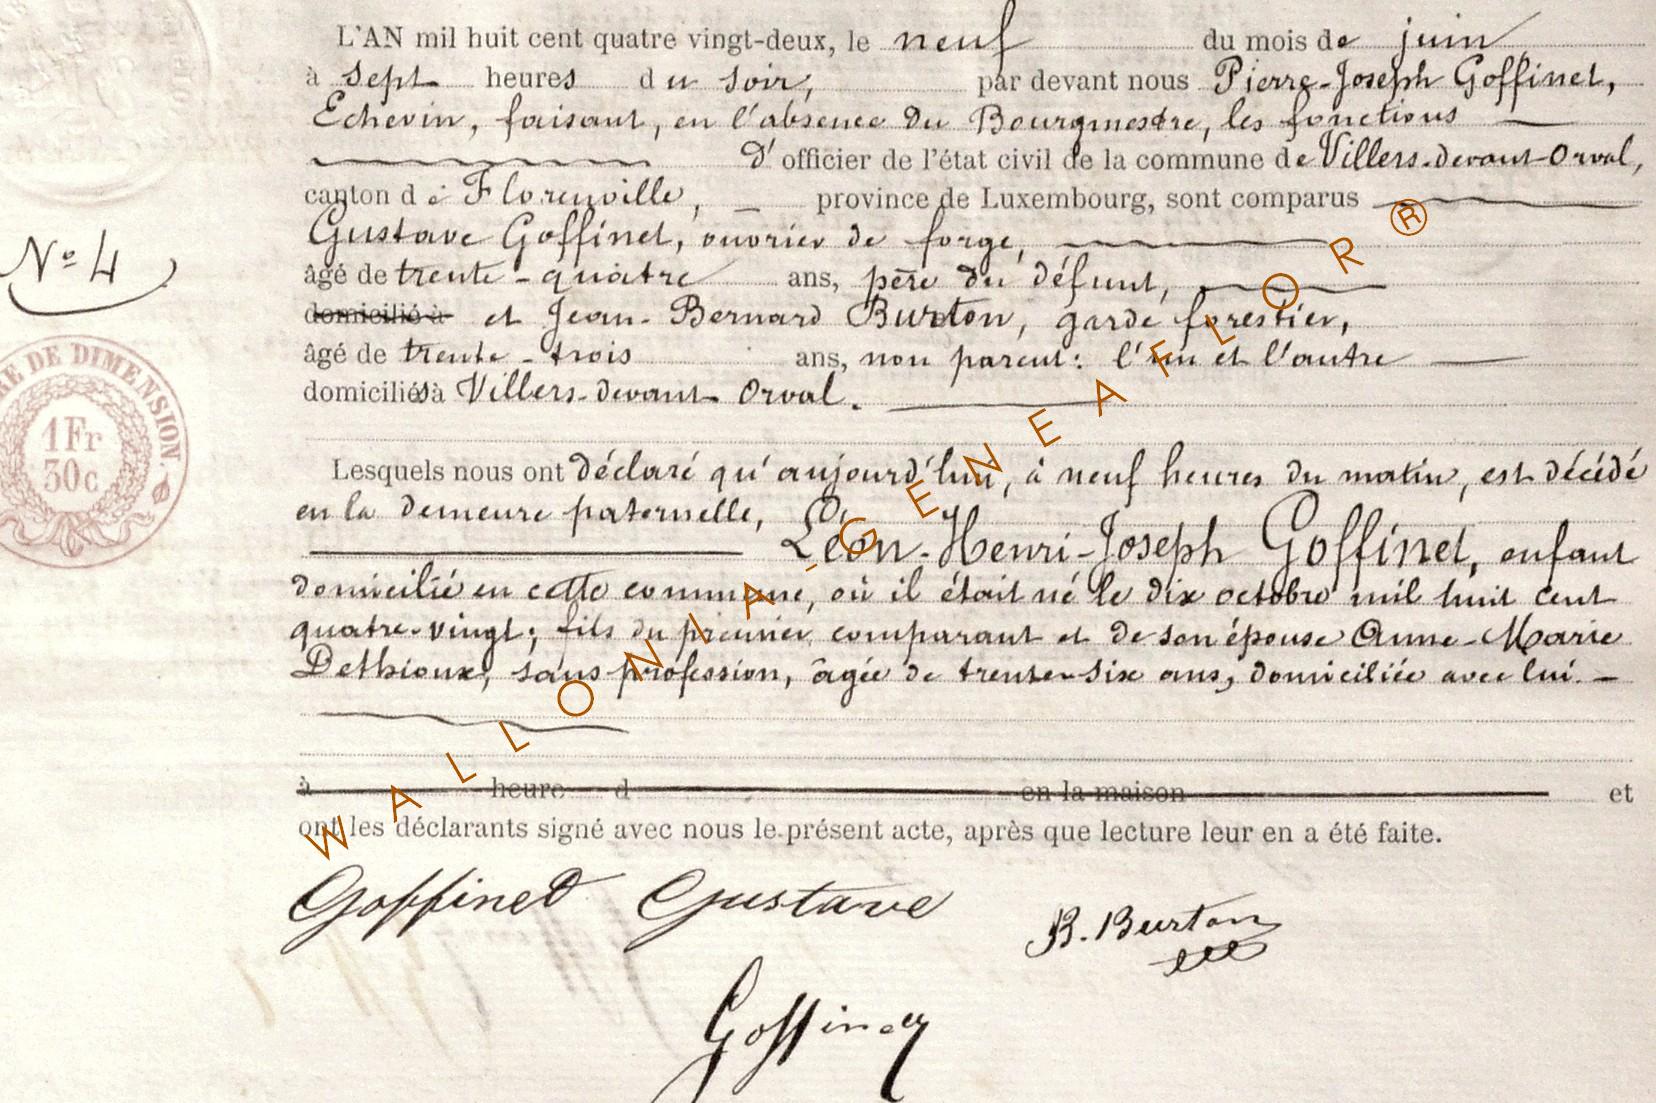 L'AN mil huit cent quatre vingt-deux, le neuf du mois de juin
à sept heures du soir, par devant nous Pierre-Joseph Goffinet,
Echevin, faisant, en l'absence du Bourgmestre, les fonctions
d'officier de l'état civil de la commune de Villers-devant-Orval,
canton de Florenville, province de Luxembourg, sont comparus
Gustave Goffinet, ouvrier de forge,
N° 4
âgé de trente-quatre ans, père du défunt,
domicilié à et Jean-Bernard Burton, garde forestier,
âgé de trente-trois ans, non parent: l'un et l'autre
domiciliés à Villers-devant-Orval.
RE DE DIMENSION.
1Fr
30c
Lesquels nous ont déclaré qu'aujourd'hui, à neuf heures du matin, est décédé
en la demeure paternelle,
Léon-Henri-Joseph Goffinet, enfant
domicilié en cette commune, où il était né le dix octobre mil huit cent
quatre-vingt; fils du premier comparant et de son épouse Anne-Marie
Dethioux, sans profession, âgée de trente-six ans, domiciliée avec lui.
à heure d en la maison et
ont les déclarants signé avec nous le présent acte, après que lecture leur en a été faite.
Goffinet Gustave
B. Burton
Goffinet
WALLONIA-GENEAFLOR®